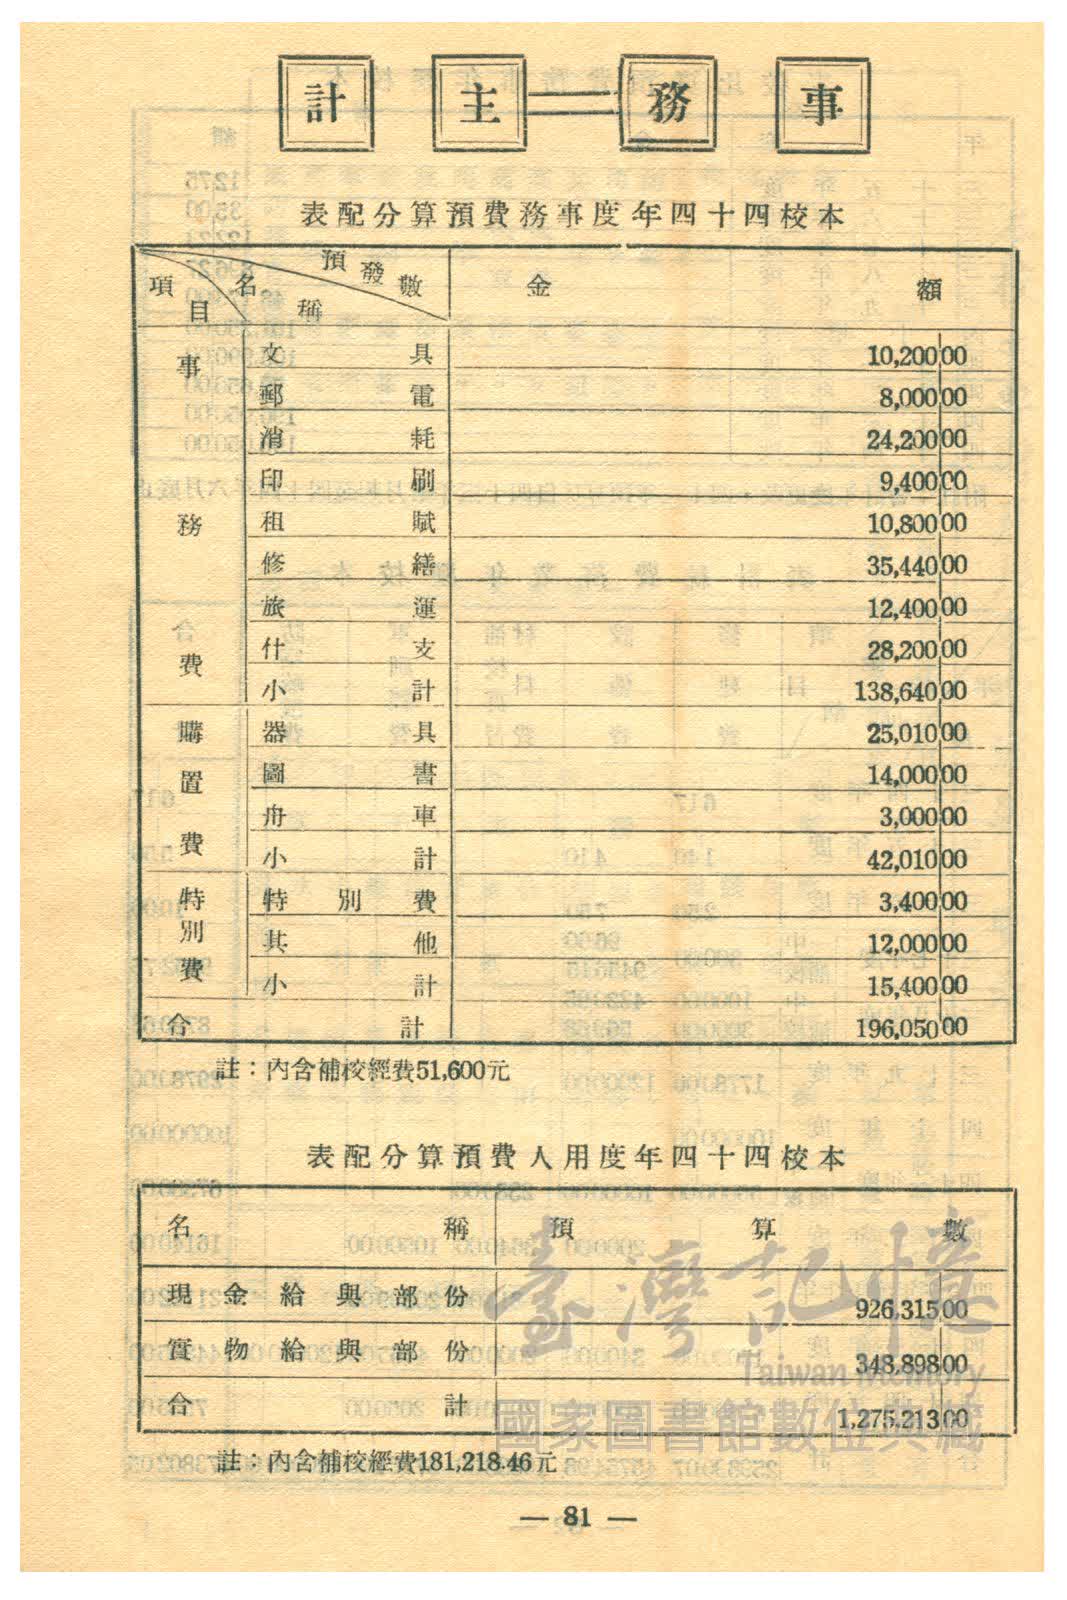 事務＝主計
本校四十四年度事務費預算分配表
項目 名稱 預發數 金額
事務費 文具 10,200 00
郵電 8,000 00
消耗 24,200 00
印刷 9,400 00
租賦 10,800 00
修繕 35,440 00
旅運 12,400 00
什支 28,200 00
小計 138,640 00
購置費 器具 25,010 00
圖書 14,000 00
舟車 3,000 00
小計 42,010 00
特別費 特別費 3,400 00
其他 12,000 00
小計 15,400 00
合計 196,050 00
註：內含補校經費51,600元
本校四十四年度用人費預算分配表
名稱 預算數
現金給與部份 926,315 00
實物給與部份 348,898 00
合計 1,275,213 00
註：內含補校經費181,218.46元
— 81 —
臺灣記憶
Taiwan Memory
國家圖書館數位典藏